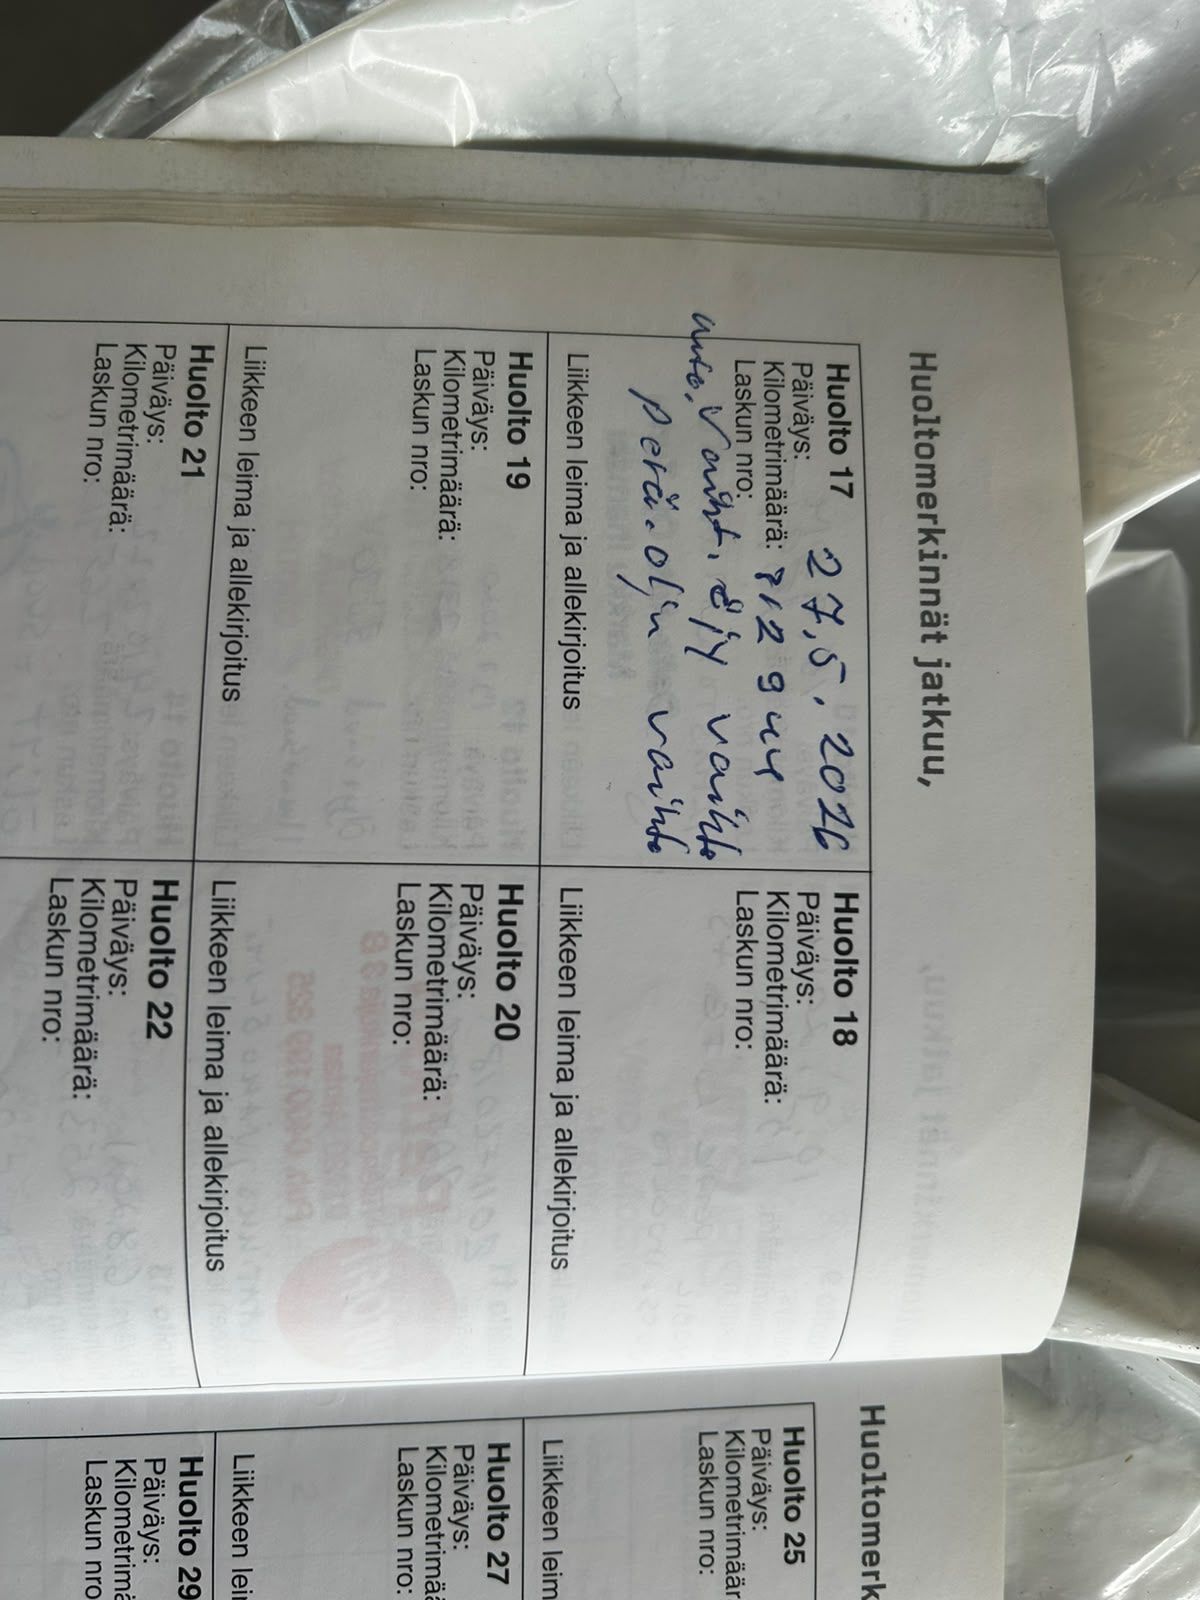 Huoltomerkinnät jatkuu,
Huolto 17
Päiväys: 27.5.2026
Kilometrimäärä:
Laskun nro:
auto. vaiht. öljy vaihto
perä. öljn vaihto
Liikkeen leima ja allekirjoitus
Huolto 18
Päiväys:
Kilometrimäärä:
Laskun nro:
Liikkeen leima ja allekirjoitus
Huolto 19
Päiväys:
Kilometrimäärä:
Laskun nro:
Liikkeen leima ja allekirjoitus
Huolto 20
Päiväys:
Kilometrimäärä:
Laskun nro:
Liikkeen leima ja allekirjoitus
Huolto 21
Päiväys:
Kilometrimäärä:
Laskun nro:
Huolto 22
Päiväys:
Kilometrimäärä:
Laskun nro:
Huoltomerk
Huolto 25
Päiväys:
Kilometrimäär
Laskun nro:
Liikkeen leim
Huolto 27
Päiväys:
Kilometrimää
Laskun nro:
Liikkeen lei
Huolto 29
Päiväys:
Kilometrimä
Laskun nro